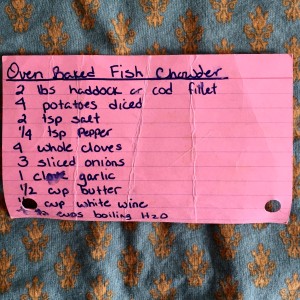 Oven Baked Fish Chowder
2 lbs haddock or cod fillet
4 potatoes diced
2 tsp salt
1/4 tsp pepper
4 whole cloves
3 sliced onions
1 clove garlic
1/2 cup butter
cup white wine
cups boiling H2O